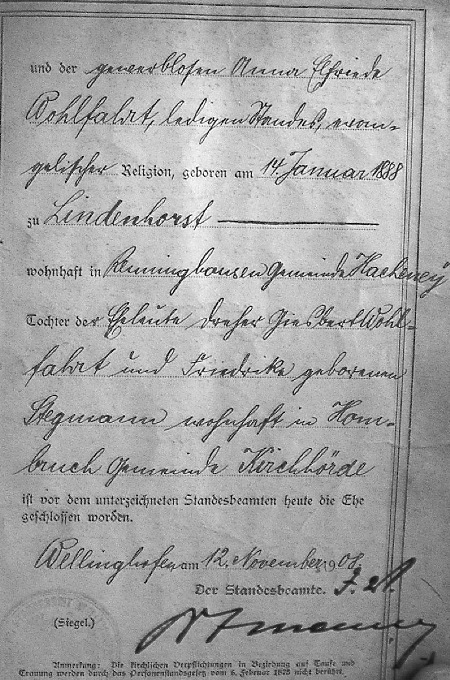 und der gewerblosen Anna Elfriede
Wohlfahrt, ledigen Standes, evan-
gelischer Religion, geboren am 14. Januar 1888
zu Lindenhorst
wohnhaft in Renninghausen Gemeinde Hacheney
Tochter der Eheleute Dreher Giesbert Wohl-
fahrt und Friedrike geborenen
Stegmann wohnhaft in Hom-
bruch Gemeinde Kirchhörde
ist vor dem unterzeichneten Standesbeamten heute die Ehe
geschlossen worden.
Wellinghofen am 12. November 1908.
Der Standesbeamte.
(Siegel.)
Anmerkung: Die kirchlichen Verpflichtungen in Beziehung auf Taufe und
Trauung werden durch das Personenstandsgesetz vom 6. Februar 1875 nicht berührt.